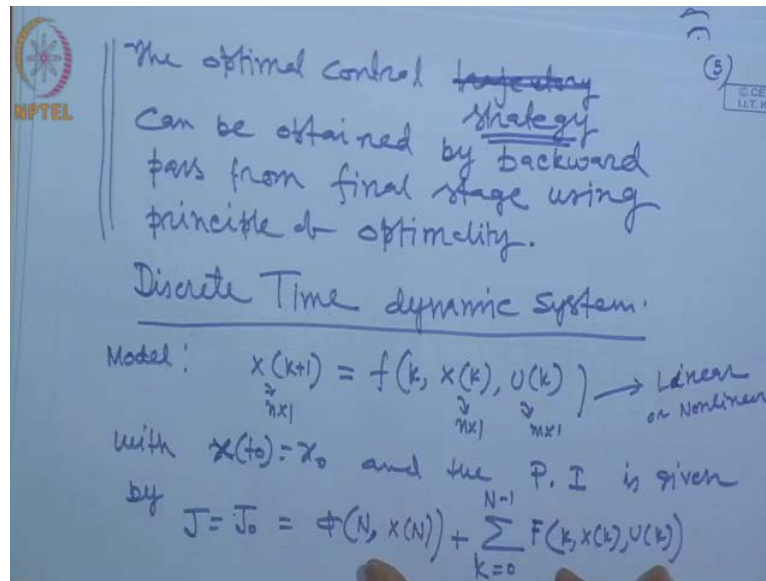 (5)
© CE
I.I.T. K
NPTEL
The optimal control trajectory
strategy
can be obtained by backward
pass from final stage using
principle of optimality.
Discrete Time dynamic system.
Model: x(k+1) = f(k, x(k), u(k)) → Linear
or Nonlinear
n×1 n×1 m×1
with x(t0) = x0 and the P.I is given
by J = J0 = Φ(N, x(N)) + ∑ F(k, x(k), u(k))
N-1
k=0